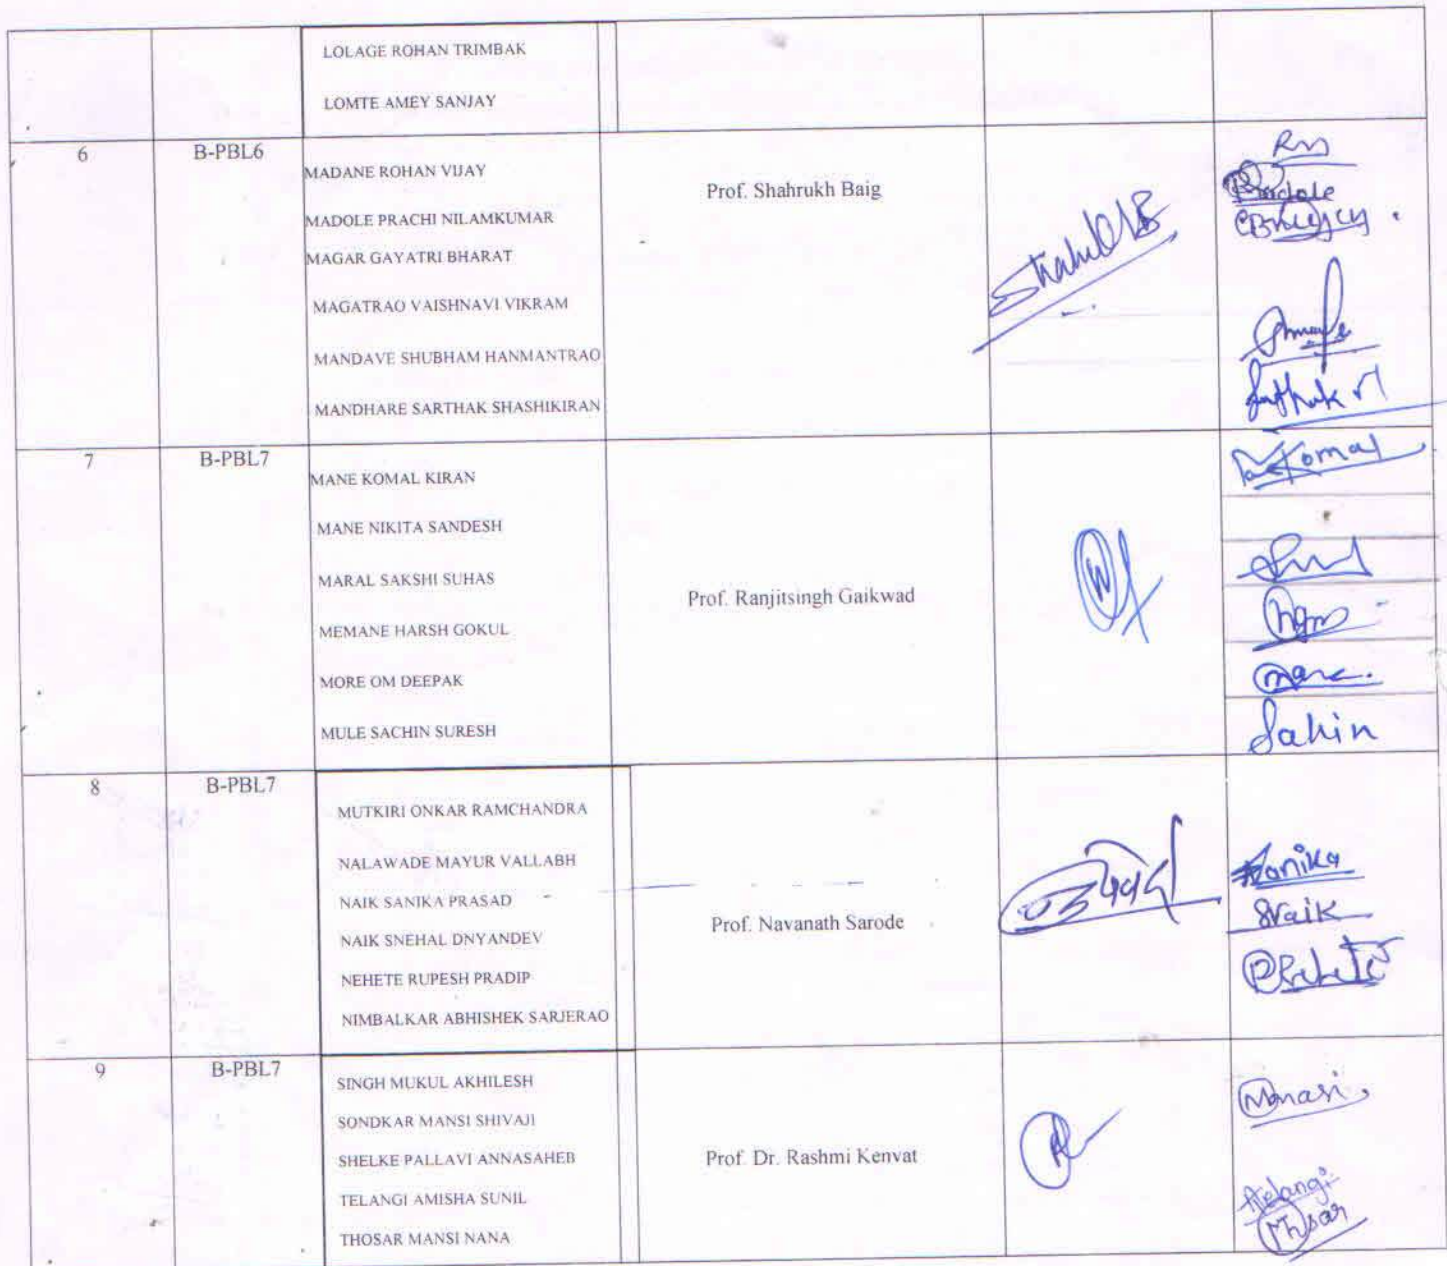 LOLAGE ROHAN TRIMBAK
LOMTE AMEY SANJAY
6
B-PBL6
MADANE ROHAN VIJAY
MADOLE PRACHI NILAMKUMAR
MAGAR GAYATRI BHARAT
MAGATRAO VAISHNAVI VIKRAM
MANDAVE SHUBHAM HANMANTRAO
MANDHARE SARTHAK SHASHIKIRAN
Prof. Shahrukh Baig
7
B-PBL7
MANE KOMAL KIRAN
MANE NIKITA SANDESH
MARAL SAKSHI SUHAS
MEMANE HARSH GOKUL
MORE OM DEEPAK
MULE SACHIN SURESH
Prof. Ranjitsingh Gaikwad
Komal
Sahin
8
B-PBL7
MUTKIRI ONKAR RAMCHANDRA
NALAWADE MAYUR VALLABH
NAIK SANIKA PRASAD
NAIK SNEHAL DNYANDEV
NEHETE RUPESH PRADIP
NIMBALKAR ABHISHEK SARJERAO
Prof. Navanath Sarode
Sanika
SNaik
9
B-PBL7
SINGH MUKUL AKHILESH
SONDKAR MANSI SHIVAJI
SHELKE PALLAVI ANNASAHEB
TELANGI AMISHA SUNIL
THOSAR MANSI NANA
Prof. Dr. Rashmi Kenvat
Manasi
Atelangi